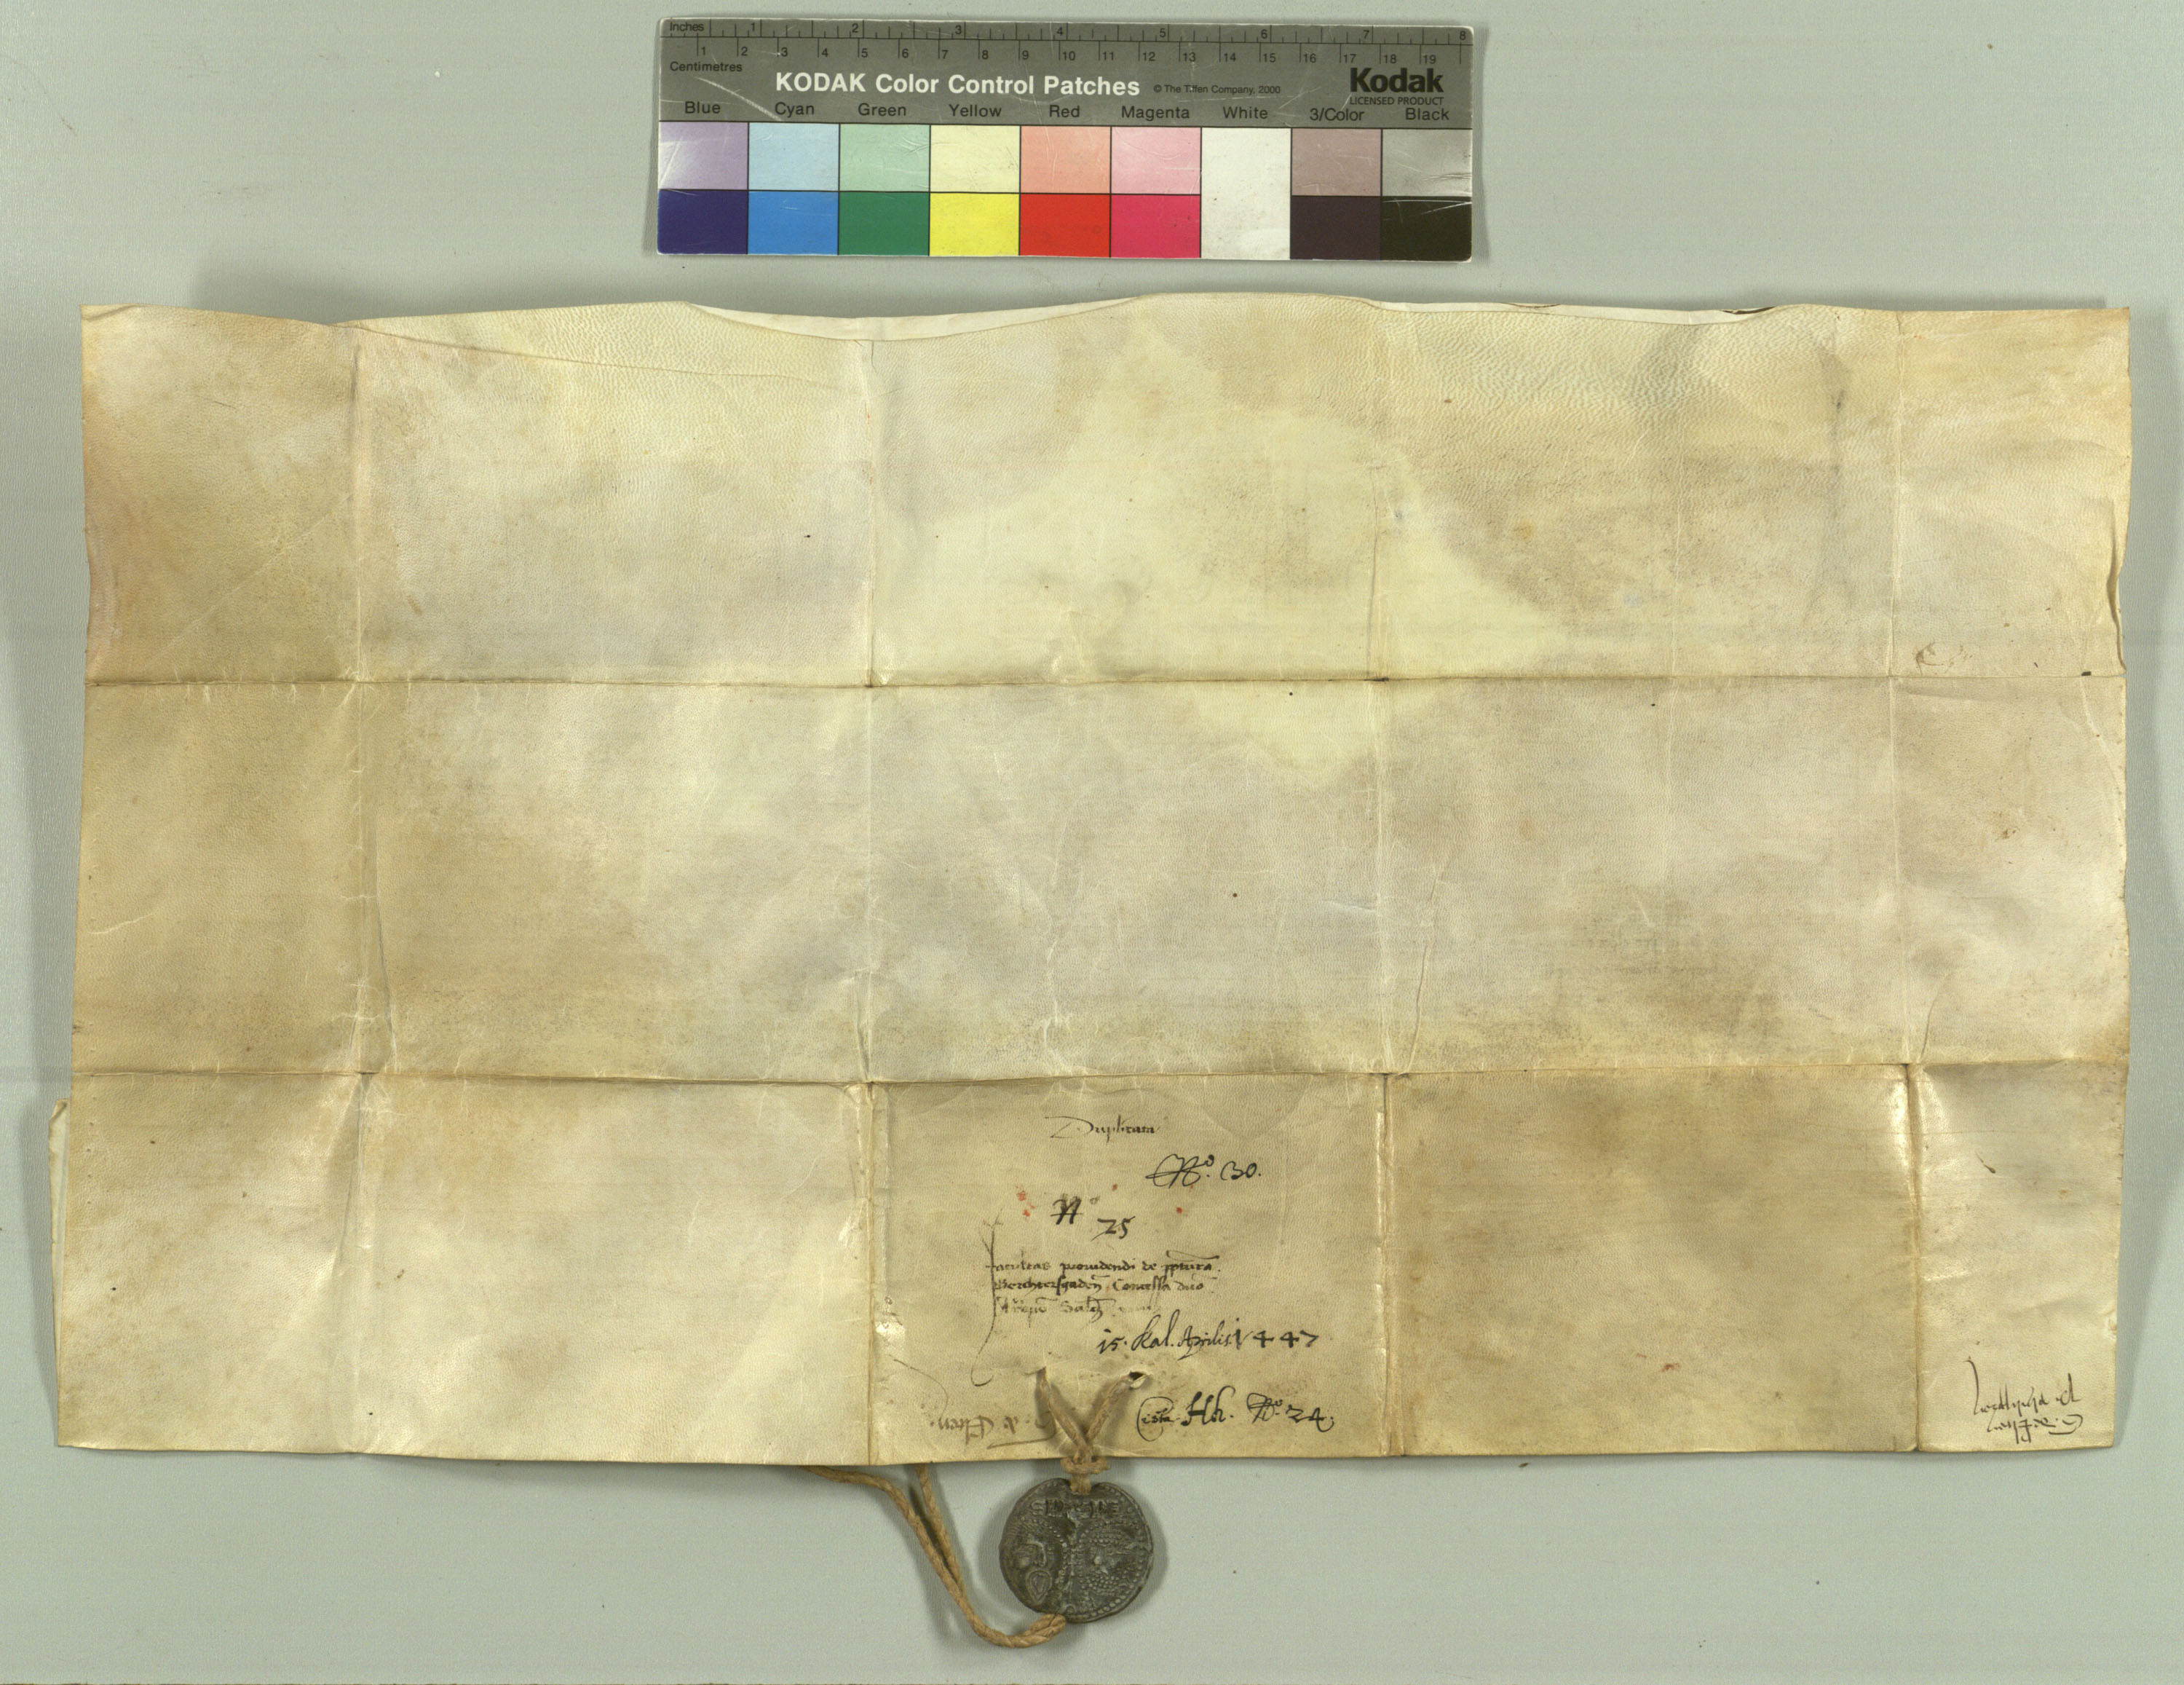 Inches 1 2 3 4 5 6 7 8
1 2 3 4 5 6 7 8 9 10 11 12 13 14 15 16 17 18 19
Centimetres
KODAK Color Control Patches © The Tiffen Company, 2000 Kodak
LICENSED PRODUCT
Blue Cyan Green Yellow Red Magenta White 3/Color Black
Duplicata
No. 30.
No 25
facultas prouidendi de pptura
Berchtersgaden Concessa dno
Archiepo Salcz
15. Kal. Aprilis 1447
Cista Hh. No. 24.
de Elten